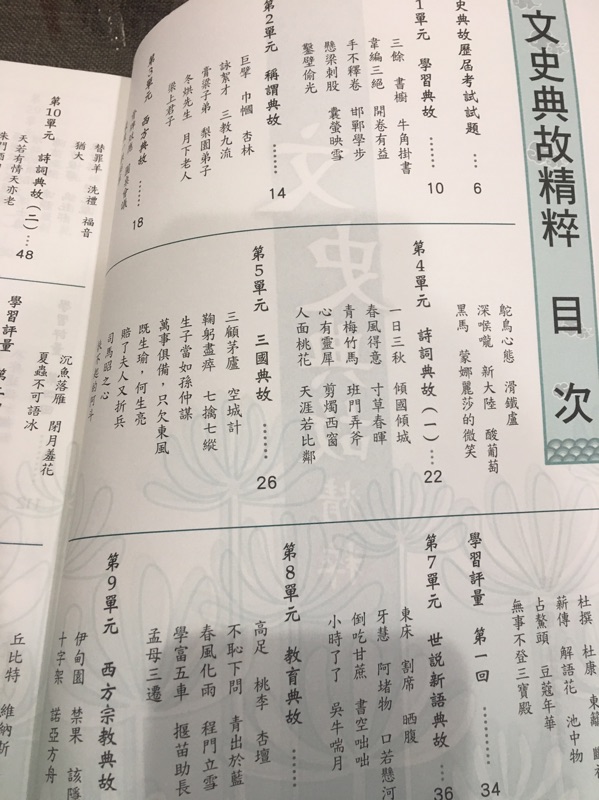 文史典故精粹 目次
史典故歷屆考試試題 …… 6
1單元 學習典故 …… 10
三餘 書櫥 牛角掛書
韋編三絕 開卷有益
手不釋卷 邯鄲學步
懸梁刺股 囊螢映雪
鑿壁偷光
第2單元 稱謂典故 …… 14
巨擘 巾幗 杏林
詠絮才 三教九流
膏粱子弟 梨園弟子
冬烘先生 月下老人
梁上君子
第3單元 西方典故 …… 18
鴕鳥心態 滑鐵盧
深喉嚨 新大陸 酸葡萄
黑馬 蒙娜麗莎的微笑
第4單元 詩詞典故(一) … 22
一日三秋 傾國傾城
春風得意 寸草春暉
青梅竹馬 班門弄斧
心有靈犀 剪燭西窗
人面桃花 天涯若比鄰
第5單元 三國典故 …… 26
三顧茅廬 空城計
鞠躬盡瘁 七擒七縱
生子當如孫仲謀
萬事俱備,只欠東風
既生瑜,何生亮
賠了夫人又折兵
司馬昭之心
杜撰 杜康 東籬
薪傳 解語花 池中物
占鰲頭 豆蔻年華
無事不登三寶殿
學習評量 第一回 …… 34
第7單元 世說新語典故 … 36
東床 割席 晒腹
牙慧 阿堵物 口若懸河
倒吃甘蔗 書空咄咄
小時了了 吳牛喘月
第8單元 教育典故 ……
高足 桃李 杏壇
不恥下問 青出於藍
春風化雨 程門立雪
學富五車 揠苗助長
孟母三遷
第9單元 西方宗教典故
伊甸園 禁果
十字架 諾亞方舟
丘比特 維納斯
替罪羊 洗禮 福音
猶大
第10單元 詩詞典故(二) … 48
天若有情天亦老
沉魚落雁 閉月羞花
夏蟲不可語冰
學習評量